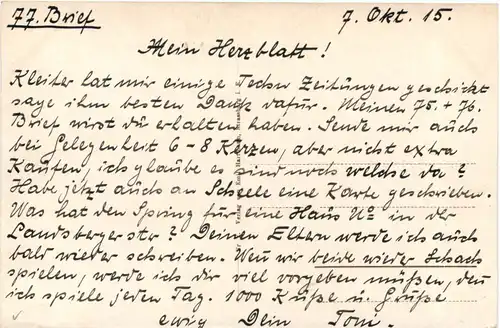 77. Brief 7. Okt. 15.
Mein Herzblatt!
Kleiter hat mir einige Zeitungen geschickt
sage ihm besten Dank dafür. Meinen 75. + 76.
Brief wirst du erhalten haben. Sende mir auch
bei Gelegenheit 6 - 8 Kerzen, aber nicht extra
kaufen, ich glaube es sind noch welche da?
Habe jetzt auch an Scheele eine Karte geschrieben.
Was hat den Spring für eine Haus № in der
Landsbergerstr? Deinen Eltern werde ich auch
bald wieder schreiben. Wen wir beide wieder Schach
spielen, werde ich dir viel vorgeben müßen, den
ich spiele jeden Tag. 1000 Küße u. Grüße
ewig Dein Toni.